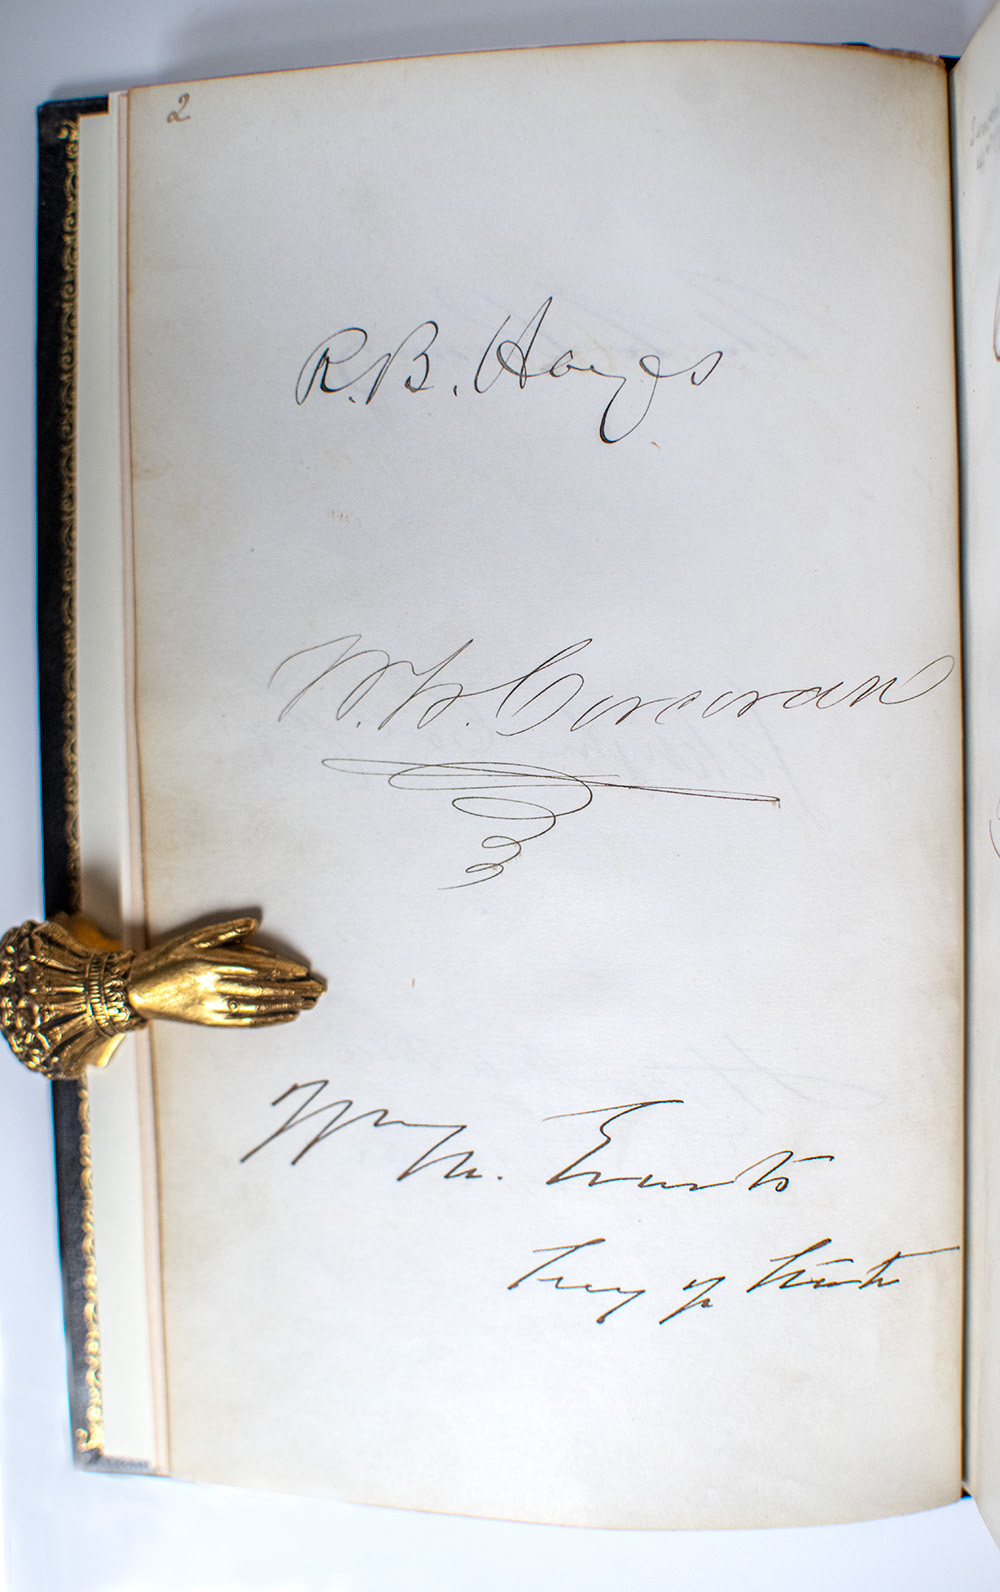 2
R. B. Hayes
W. W. Corcoran
Wm M. Evarts
Secy of State